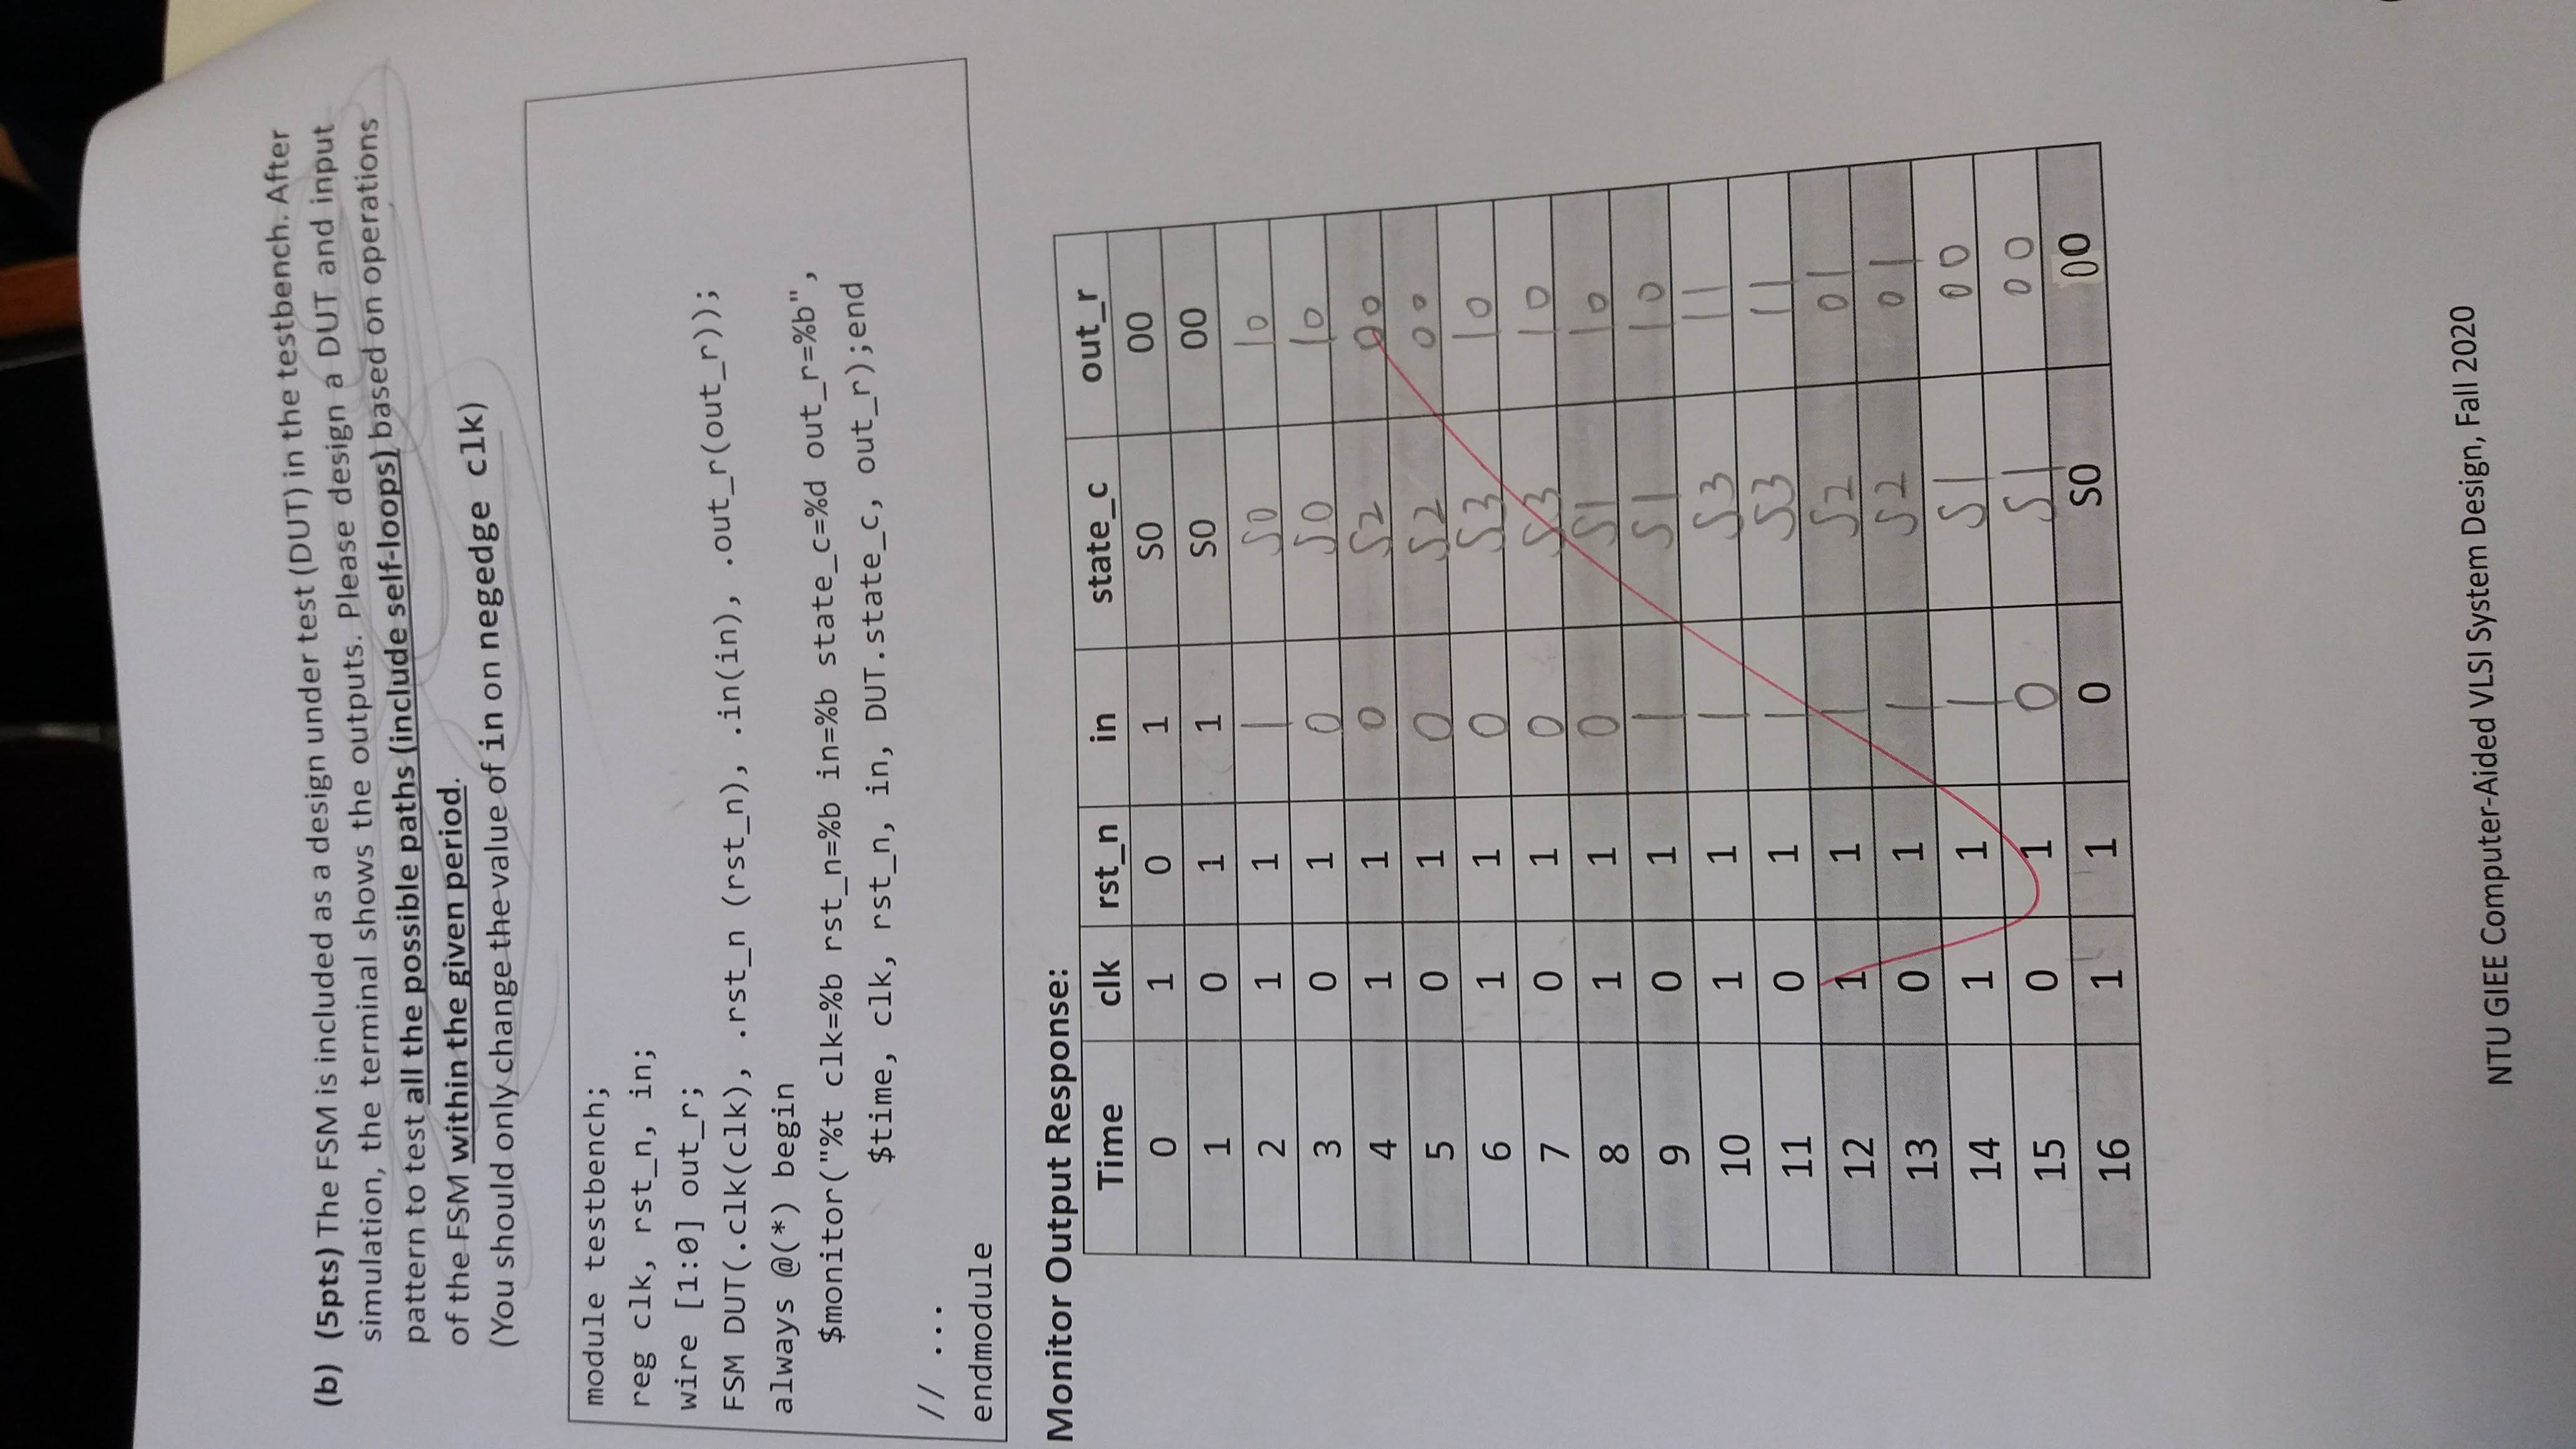 (b) (5pts) The FSM is included as a design under test (DUT) in the testbench. After
simulation, the terminal shows the outputs. Please design a DUT and input
pattern to test all the possible paths (include self-loops) based on operations
of the FSM within the given period.
(You should only change the value of in on negedge clk)
module testbench;
reg clk, rst_n, in;
wire [1:0] out_r;
FSM DUT(.clk(clk), .rst_n (rst_n), .in(in), .out_r(out_r));
always @(*) begin
$monitor("%t clk=%b rst_n=%b in=%b state_c=%d out_r=%b",
$time, clk, rst_n, in, DUT.state_c, out_r);end
// ...
endmodule
Monitor Output Response:
Time clk rst_n in state_c out_r
0 1 0 1 S0 00
1 0 1 1 S0 00
2 1 1 1 S0 10
3 0 1 0 S0 10
4 1 1 0 S2 00
5 0 1 0 S2 00
6 1 1 0 S3 10
7 0 1 0 S3 10
8 1 1 0 S1 10
9 0 1 1 S1 10
10 1 1 1 S3 11
11 0 1 1 S3 11
12 1 1 1 S2 01
13 0 1 1 S2 01
14 1 1 1 S1 00
15 0 1 0 S1 00
16 1 1 0 S0 00
NTU GIEE Computer-Aided VLSI System Design, Fall 2020